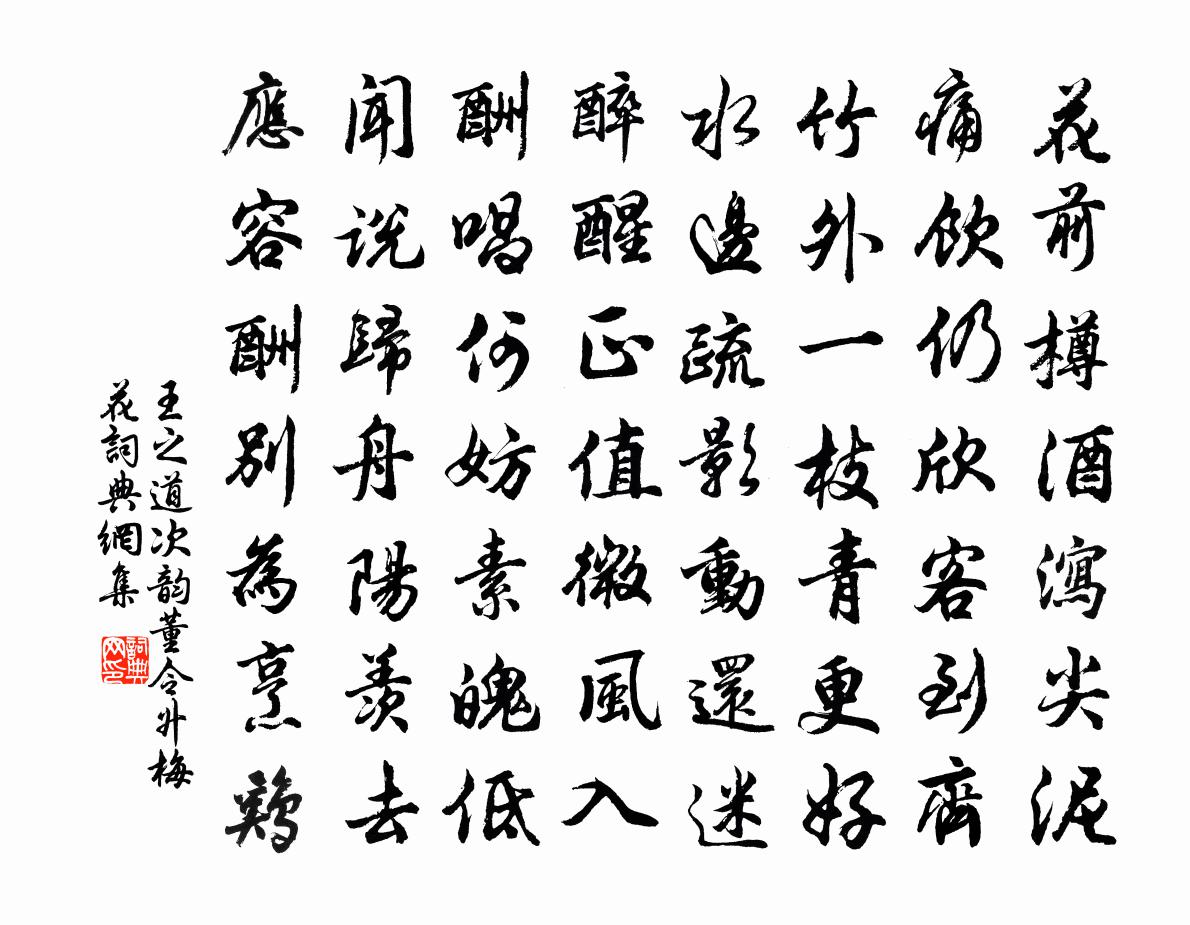 花前樽酒瀉尖泥
痛飲仍欣客到齊
竹外一枝青更好
水邊疏影動還迷
醉醒正值微風入
酬唱何妨素魄低
聞說歸舟陽羨去
應容酬別為烹鷄
王之道次韵董令升梅
花詞典網集
詞典网印